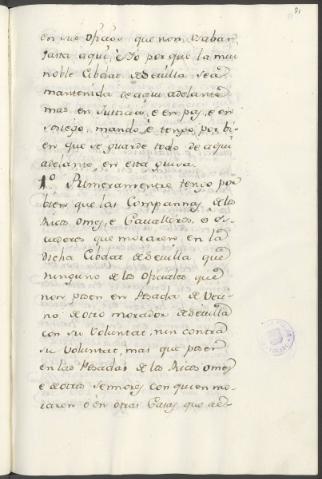 en sus Ofizios que non usaban
fasta aqui, e Yo por que la mui
noble Cibdat de Sevilla sea
mantenida de aqui adelante
mas en Justicia, e en paz, e en
sosiego, mando, e tengo por bi-
en que se guarde todo de aqui
adelante en esta guisa.
1.º Primeramente tengo por
bien que las Compannas de los
Ricos Omes, e Cavalleros, o Es-
cuderos que moraren en la
Dicha Cibdat de Sevilla que
ninguno de los Oficiales que
non posen en Posada de Veci-
no de otro morador de Sevilla
con su Voluntat, nin contra
su Voluntat, mas que posen
en las Posadas de los Ricos Omes
e de otros Sennores con quien mo-
raren o en otras Casas que